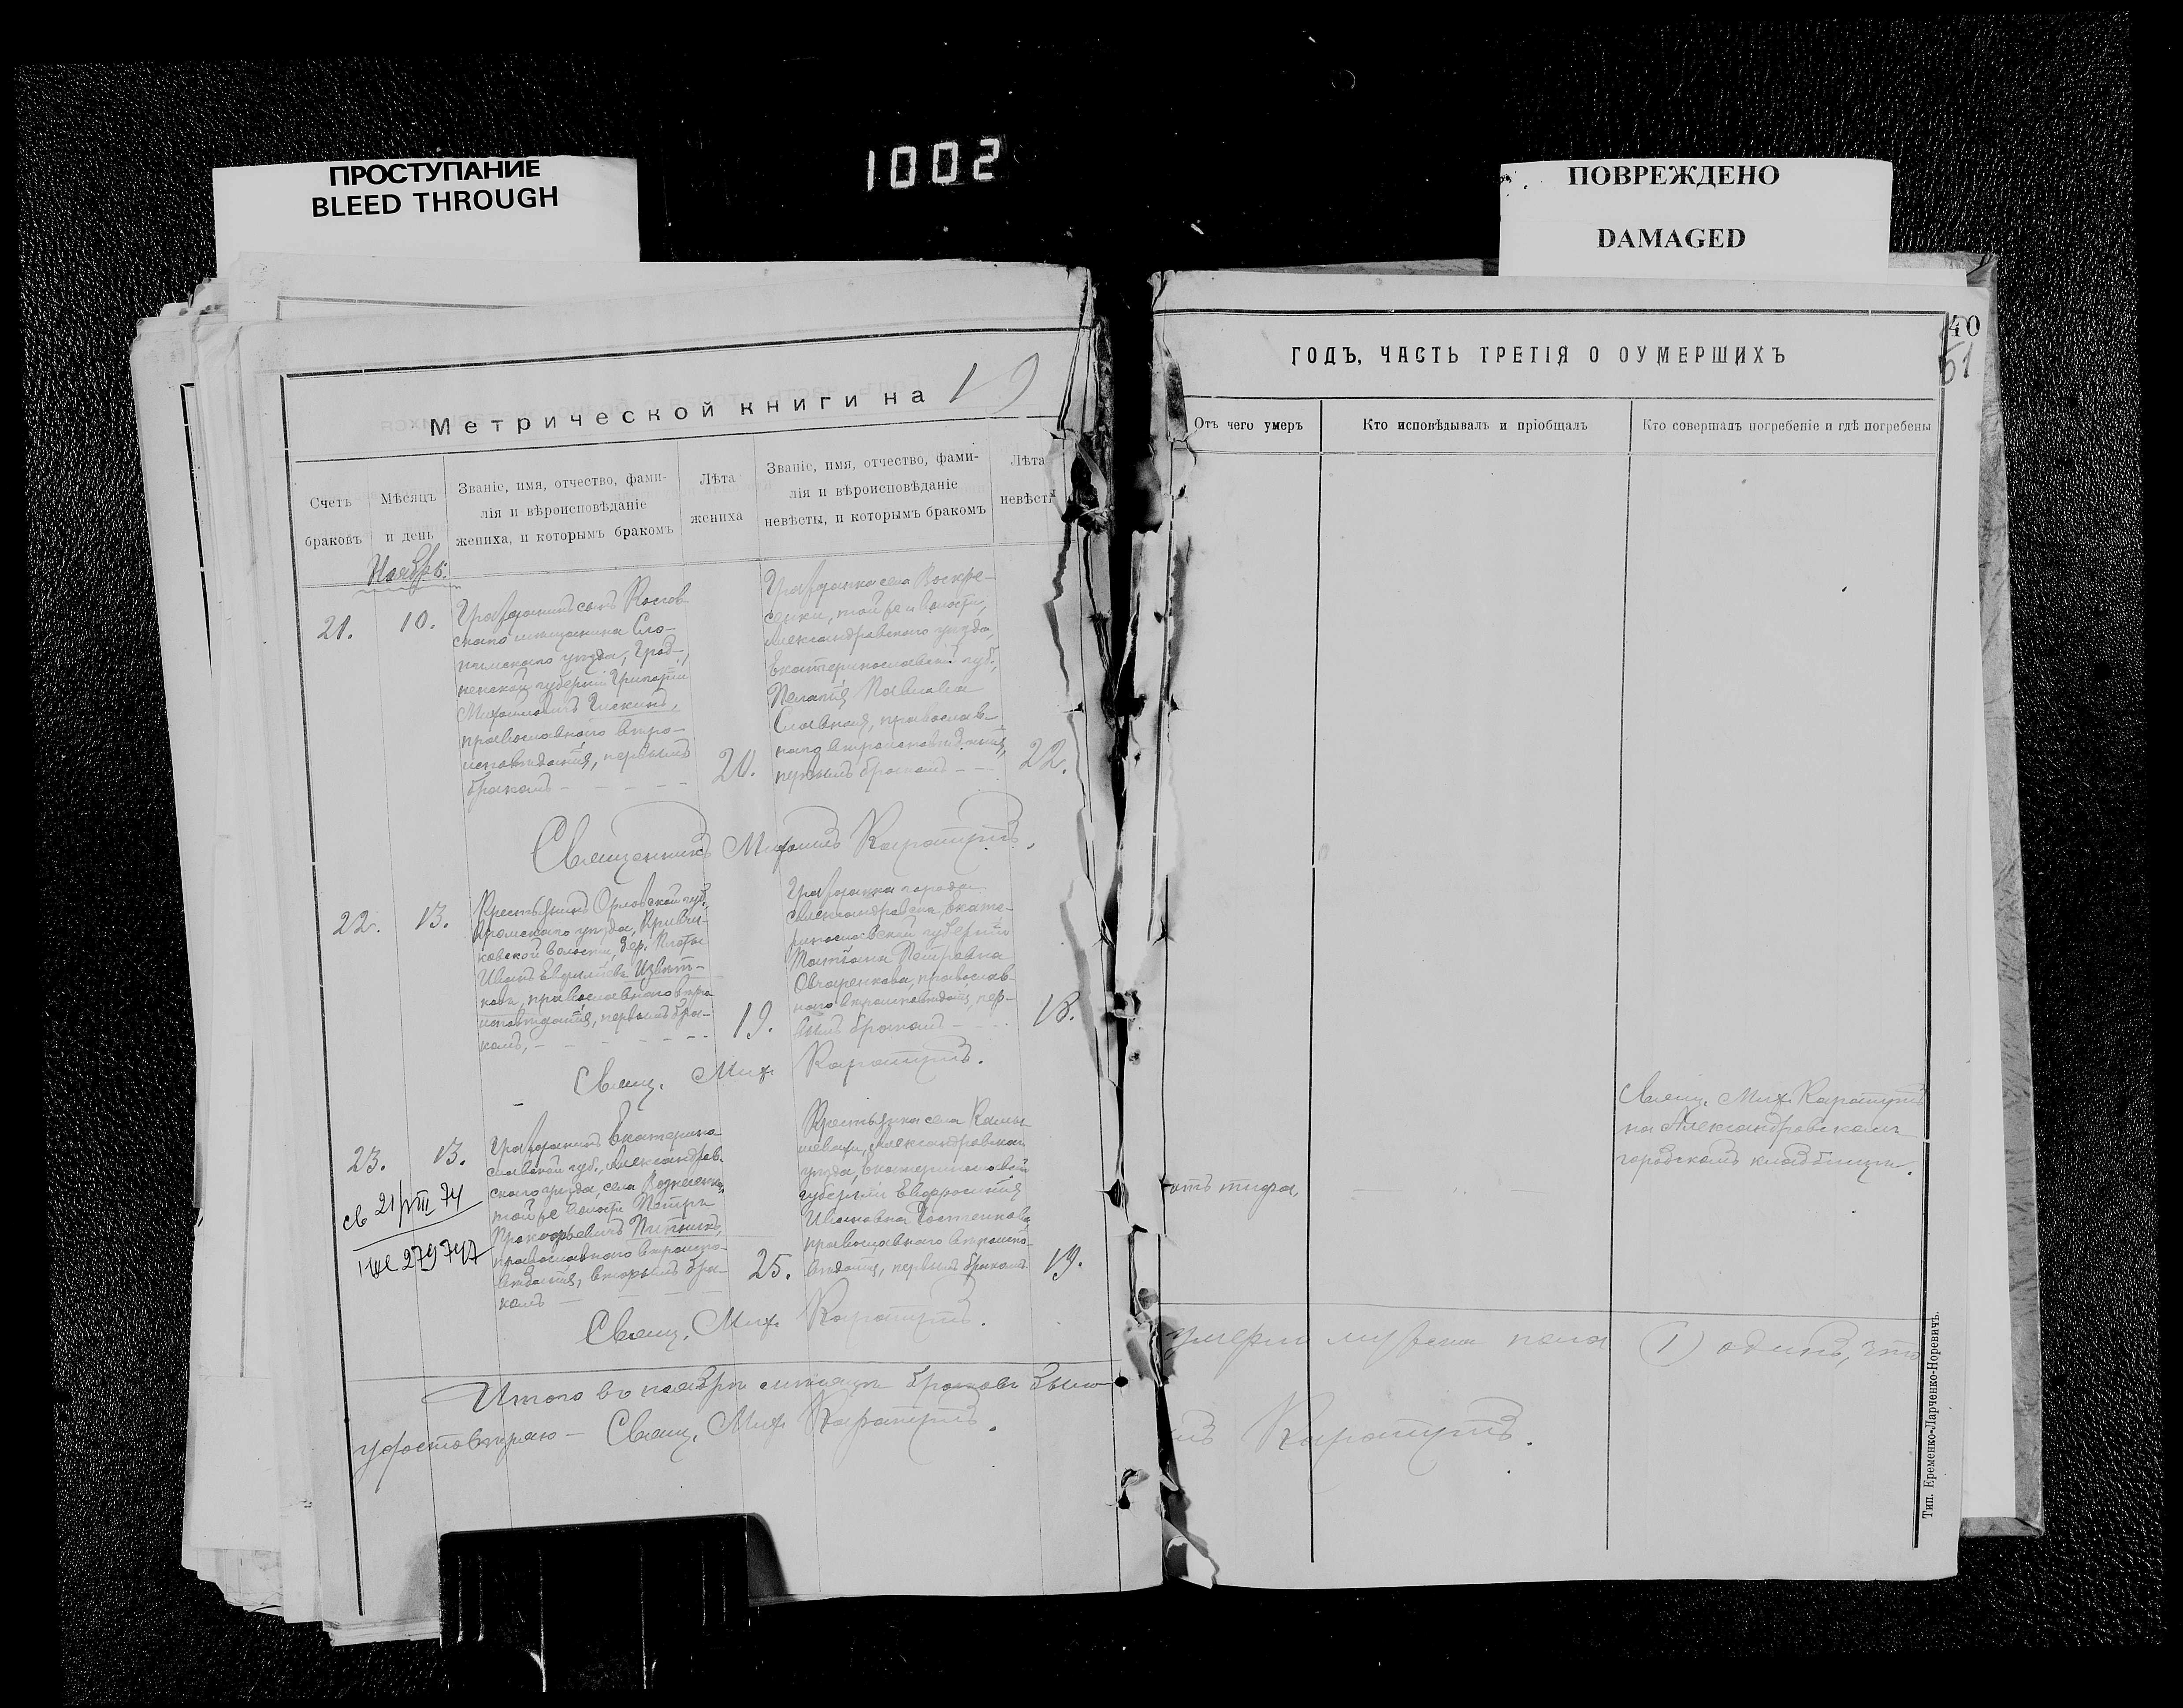 ПРОСТУПАНИЕ
BLEED THROUGH
1002
ПОВРЕЖДЕНО
DAMAGED
Метрической книги на 19
Счетъ браковъ
Мѣсяцъ и день
Званіе, имя, отчество, фами-
лія и вѣроисповѣданіе
жениха, и которымъ бракомъ
Лѣта
жениха
Званіе, имя, отчество, фами-
лія и вѣроисповѣданіе
невѣсты, и которымъ бракомъ
Лѣта
невѣсты
Ноябрь.
21.
10.
Гражданинъ сынъ
скаго мѣщанина Сло-
нимскаго уѣзда, Грод-
ненской губерніи Григорій
Михаиловичъ
православнаго вѣро-
исповѣданія, первымъ
бракомъ
20.
Гражданка села Воскре-
сенки, той же волости,
Александровскаго уѣзда,
Екатеринославской губ.,
Пелагія Павловна
православ-
наго вѣроисповѣданія,
первымъ бракомъ
22.
Священникъ Михаилъ Карапутъ.
22.
13.
Крестьянинъ Орловской губ.
Кромскаго уѣзда,
волости, дер.
Иванъ
православнаго вѣро
исповѣданія, первымъ бра-
комъ,
19.
Гражданка города
Александровска, Екате-
ринославской губерніи
Татіана Петровна
Овчаренкова, православ-
наго вѣроисповѣданія, пер-
вымъ бракомъ
18.
Свящ. Мих. Карапутъ.
23.
13.
св 21/VIII 74
279747
Гражданинъ Екатерино
славской губ., Александров-
скаго уѣзда, села Вознесенки,
той же волости Петръ
Прокофьевичъ
православнаго вѣроиспо-
вѣданія, вторымъ бра-
комъ
25.
Крестьянка села Камы
шевахи, Александровскаго
уѣзда, Екатеринославской
губерніи Евфросинія
Ивановна
православнаго вѣроиспо-
вѣданія, первымъ бракомъ
19.
Свящ. Мих. Карапутъ.
Итого въ ноябрѣ мѣсяцѣ браковъ было
удостовѣряю — Свящ. Мих. Карапутъ.
ГОДЪ, ЧАСТЬ ТРЕТІЯ О ОУМЕРШИХЪ
40
51
Отъ чего умеръ
Кто исповѣдывалъ и пріобщалъ
Кто совершалъ погребеніе и гдѣ погребены
отъ тифа,
Свящ. Мих. Карапутъ
на Александровскомъ
городскомъ кладбищѣ.
умерш мужска пола (1) одинъ, что
Карапутъ.
Тип. Еременко-Ларченко-Норевичъ.